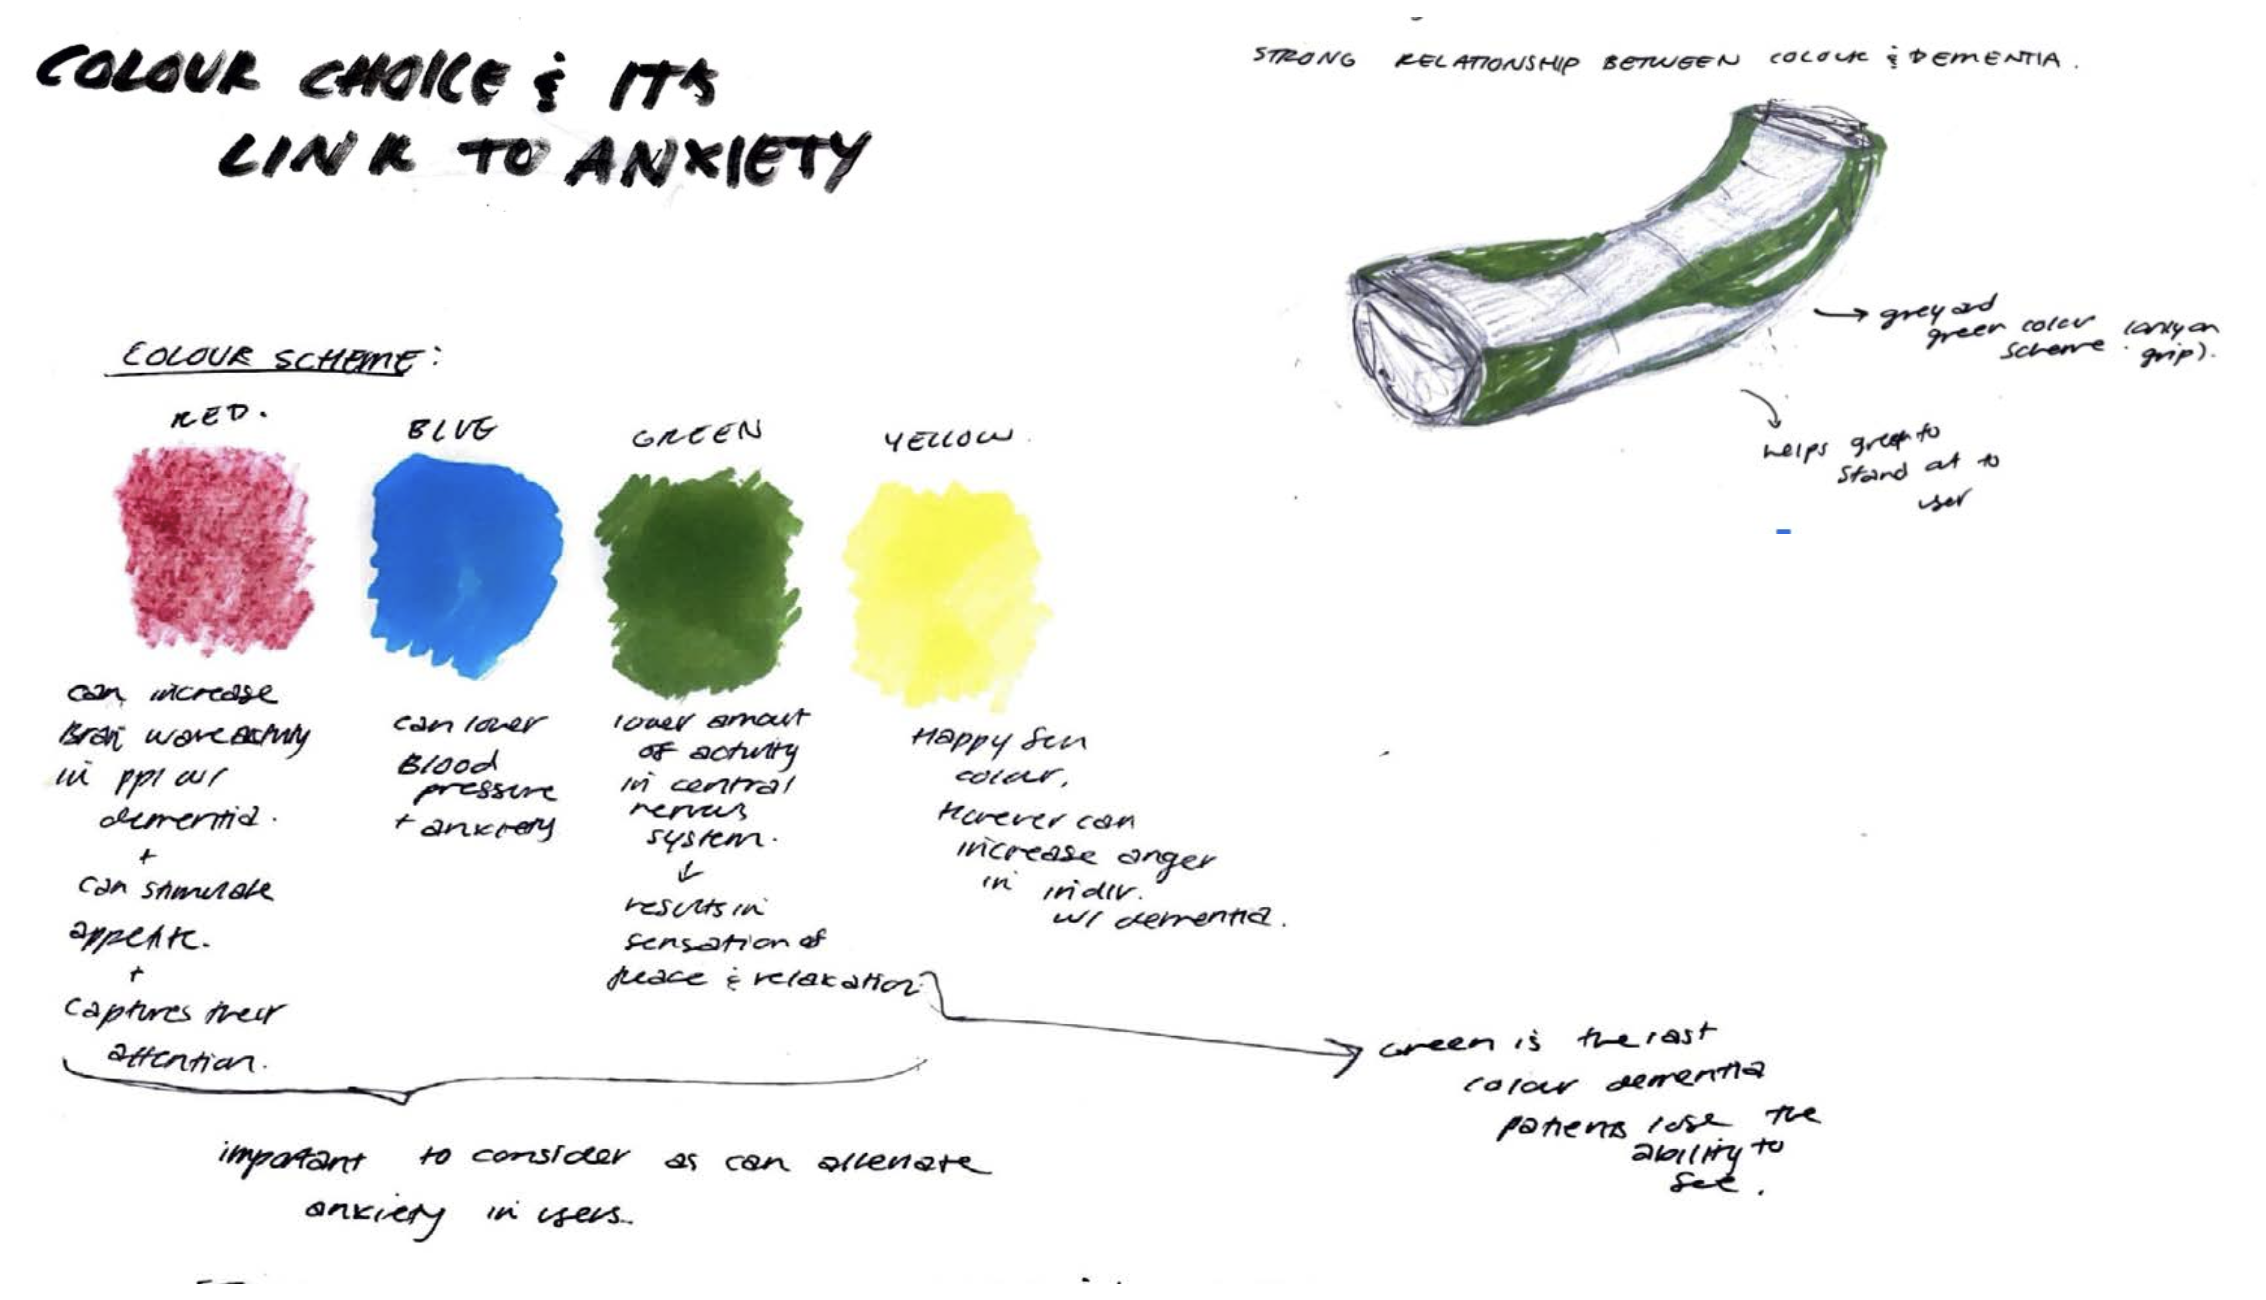 COLOUR CHOICE & ITS
LINK TO ANXIETY
STRONG RELATIONSHIP BETWEEN COLOUR & DEMENTIA.
→ grey and
green color (only on
scheme. grip).
helps green to
stand out to
user
COLOUR SCHEME:
RED.
can increase
Brain wave activity
in ppl w/
dementia.
+
can stimulate
appetite.
+
captures their
attention.
BLUE
can lower
Blood
pressure
+ anxiety
GREEN
lower amount
of activity
in central
nervous
system.
↓
results in
sensation of
peace & relaxation.
YELLOW
Happy Sun
colour,
However can
increase anger
in indiv.
w/ dementia.
Green is the last
colour dementia
patients lose the
ability to
see.
important to consider as can alleviate
anxiety in users.